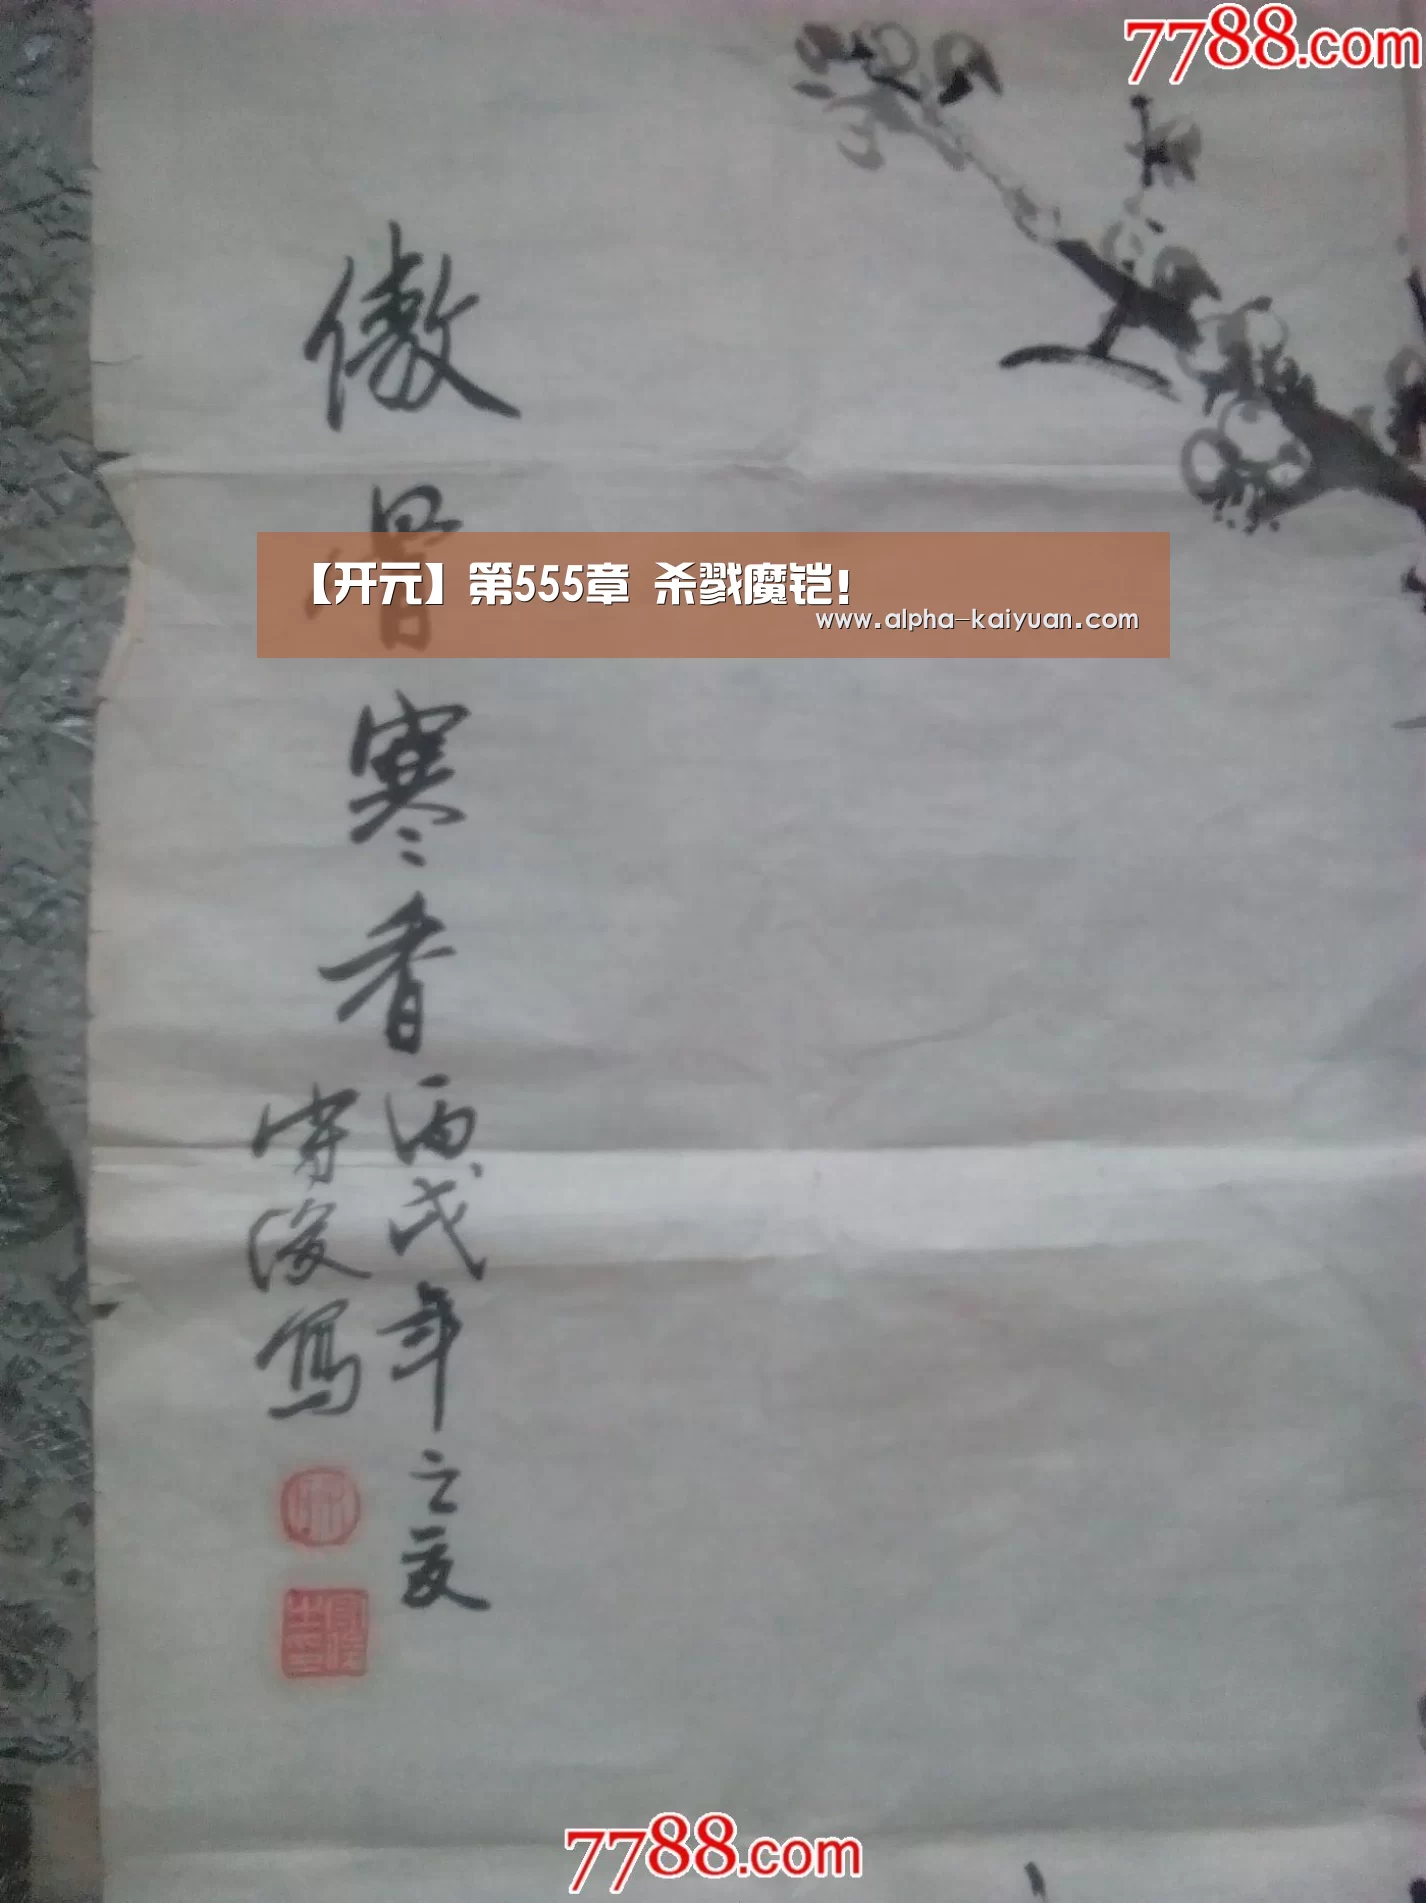 7788.com
傲骨寒香
【开元】第555章 杀戮魔铠!
www.alpha-kaiyuan.com
丙戌年之夏
写
7788.com